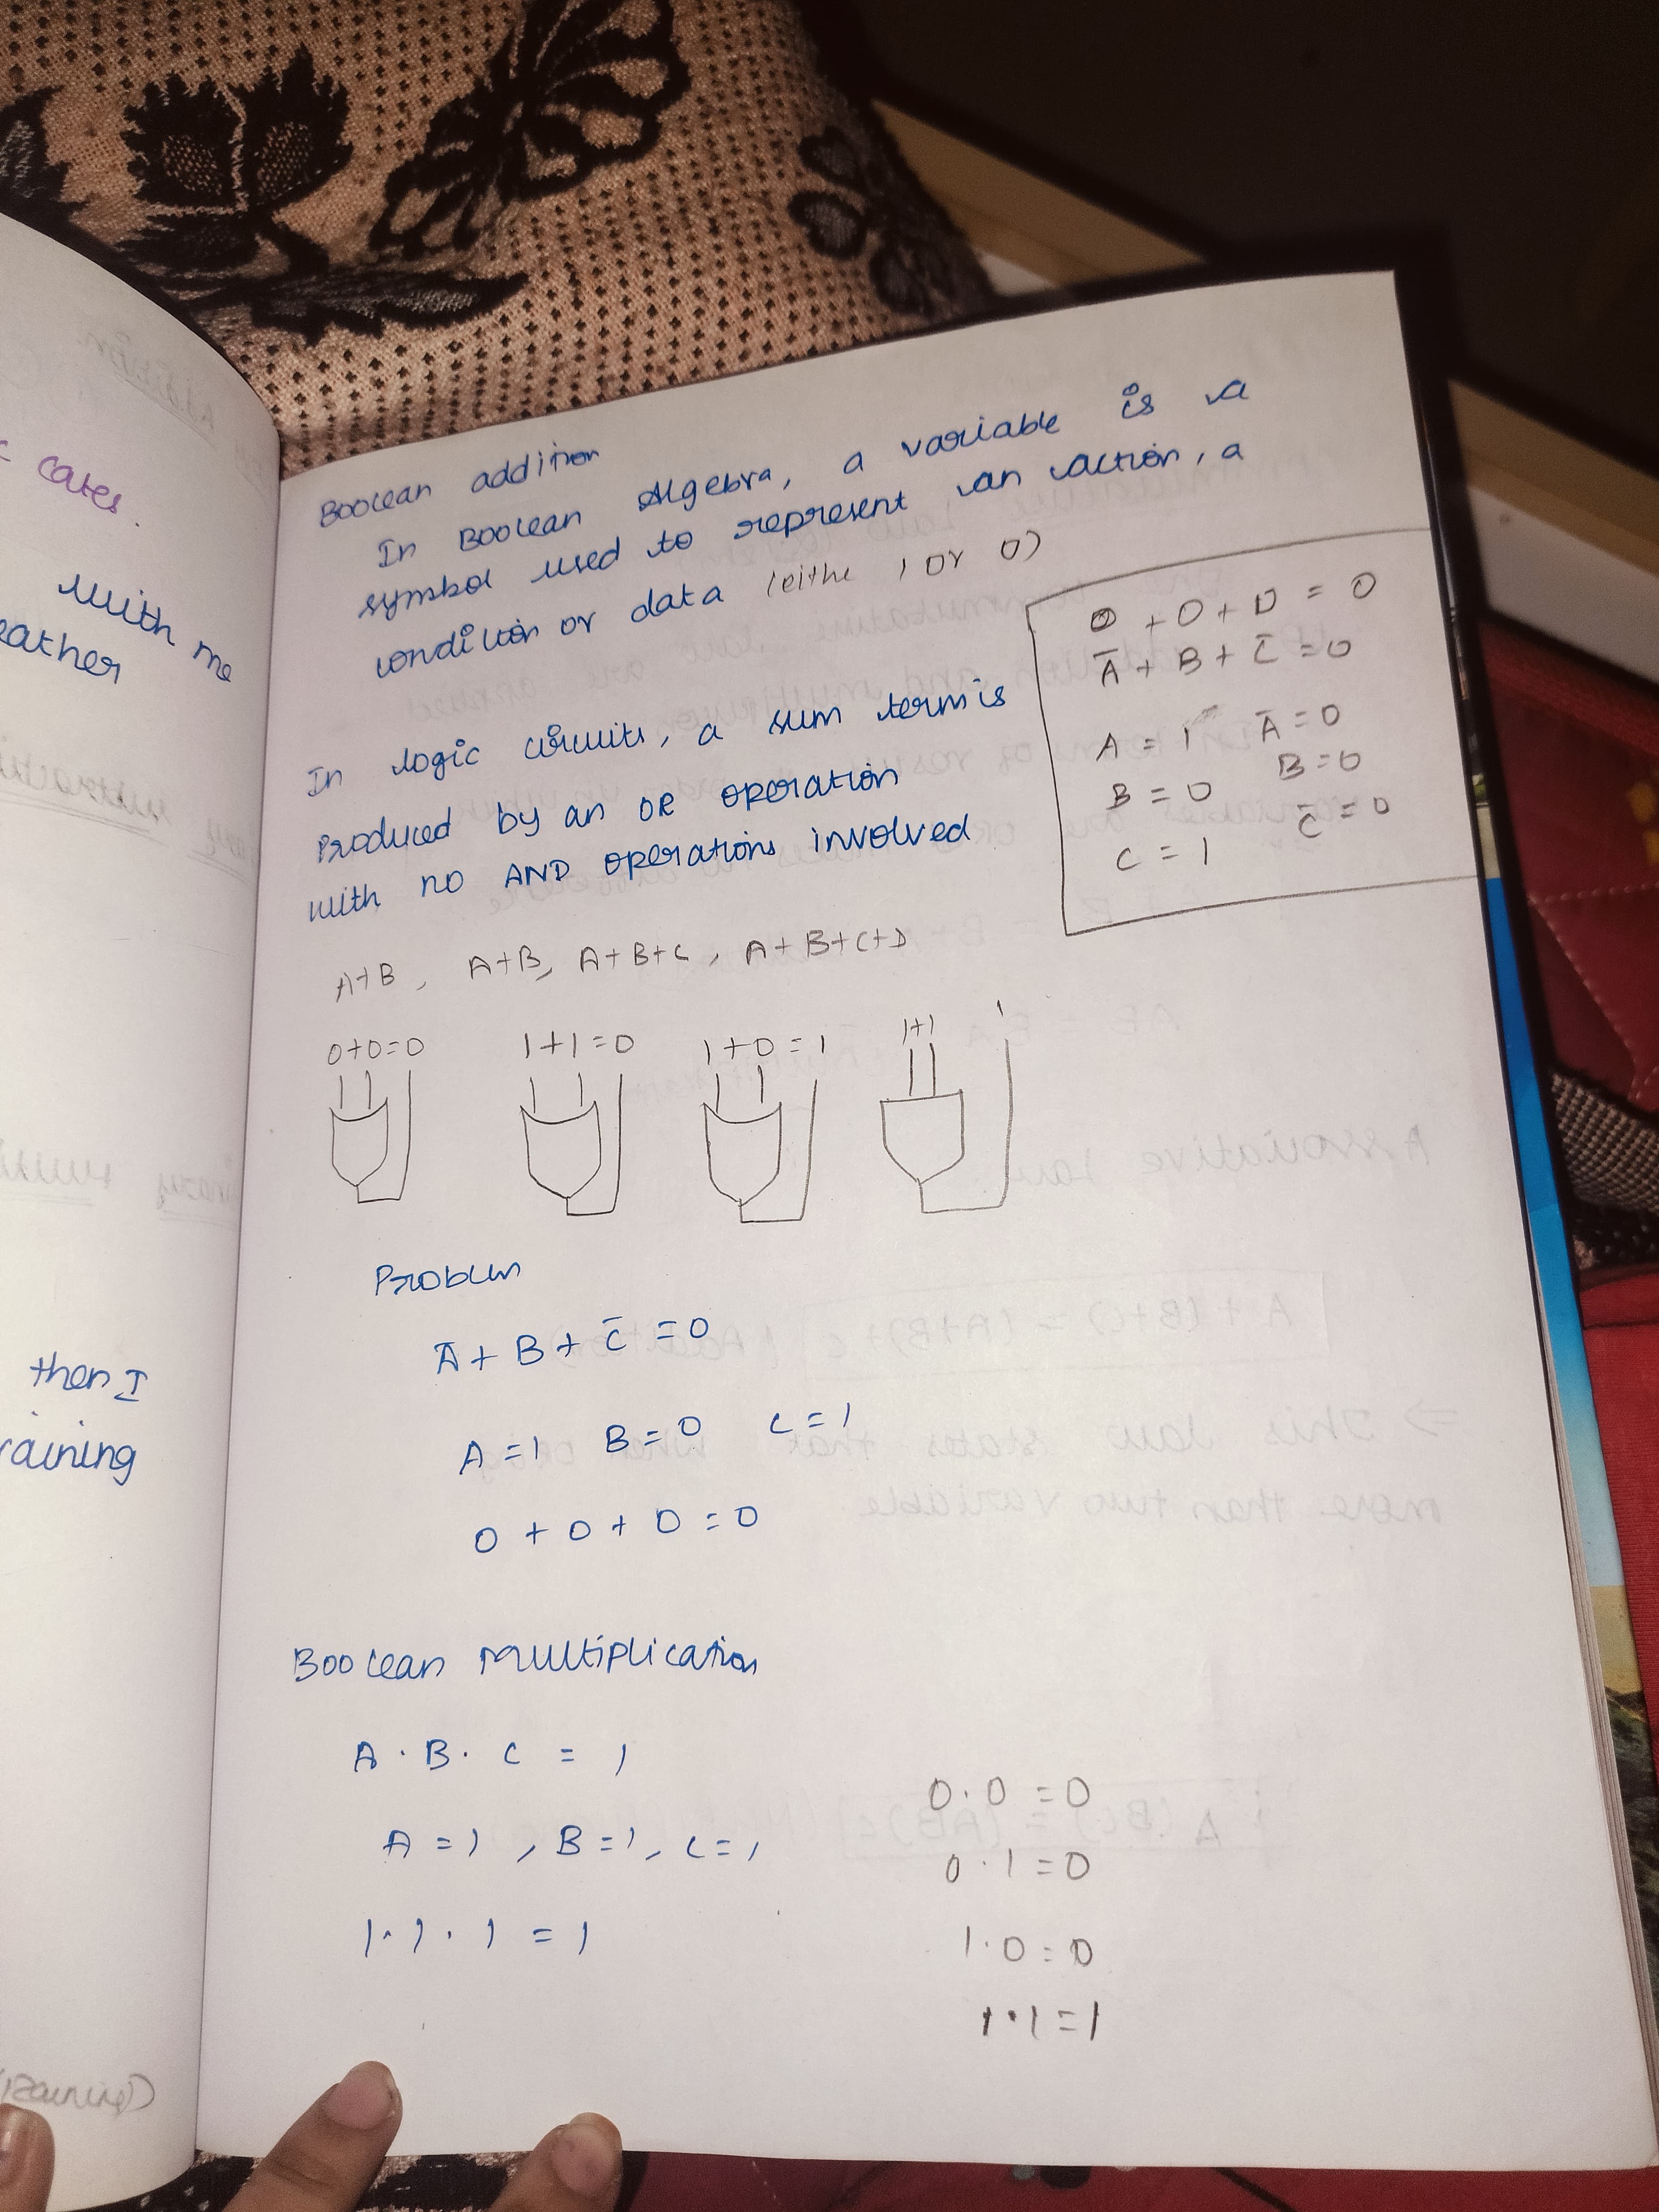 c cates.
with me
eather
then I
raining
Boolean addition
In Boolean Algebra, a variable is a
symbol used to represent an action, a
condition or data (eithe 1 or 0)
0 + 0 + 0 = 0
A̅ + B + C̅ = 0
A = 1 A̅ = 0
B = 0 B = 0
C = 1 C̅ = 0
In logic circuits, a sum term is
produced by an OR operation
with no AND operations involved
A+B, A+B, A+B+C, A+B+C+D
0+0=0 1+1=0 1+0=1 1+1 1
Problem
A̅ + B + C̅ = 0
A = 1 B = 0 C = 1
0 + 0 + 0 = 0
Boolean Multiplication
A · B · C = 1
A = 1, B = 1, C = 1
1 · 1 · 1 = 1
0 · 0 = 0
0 · 1 = 0
1 · 0 = 0
1 · 1 = 1